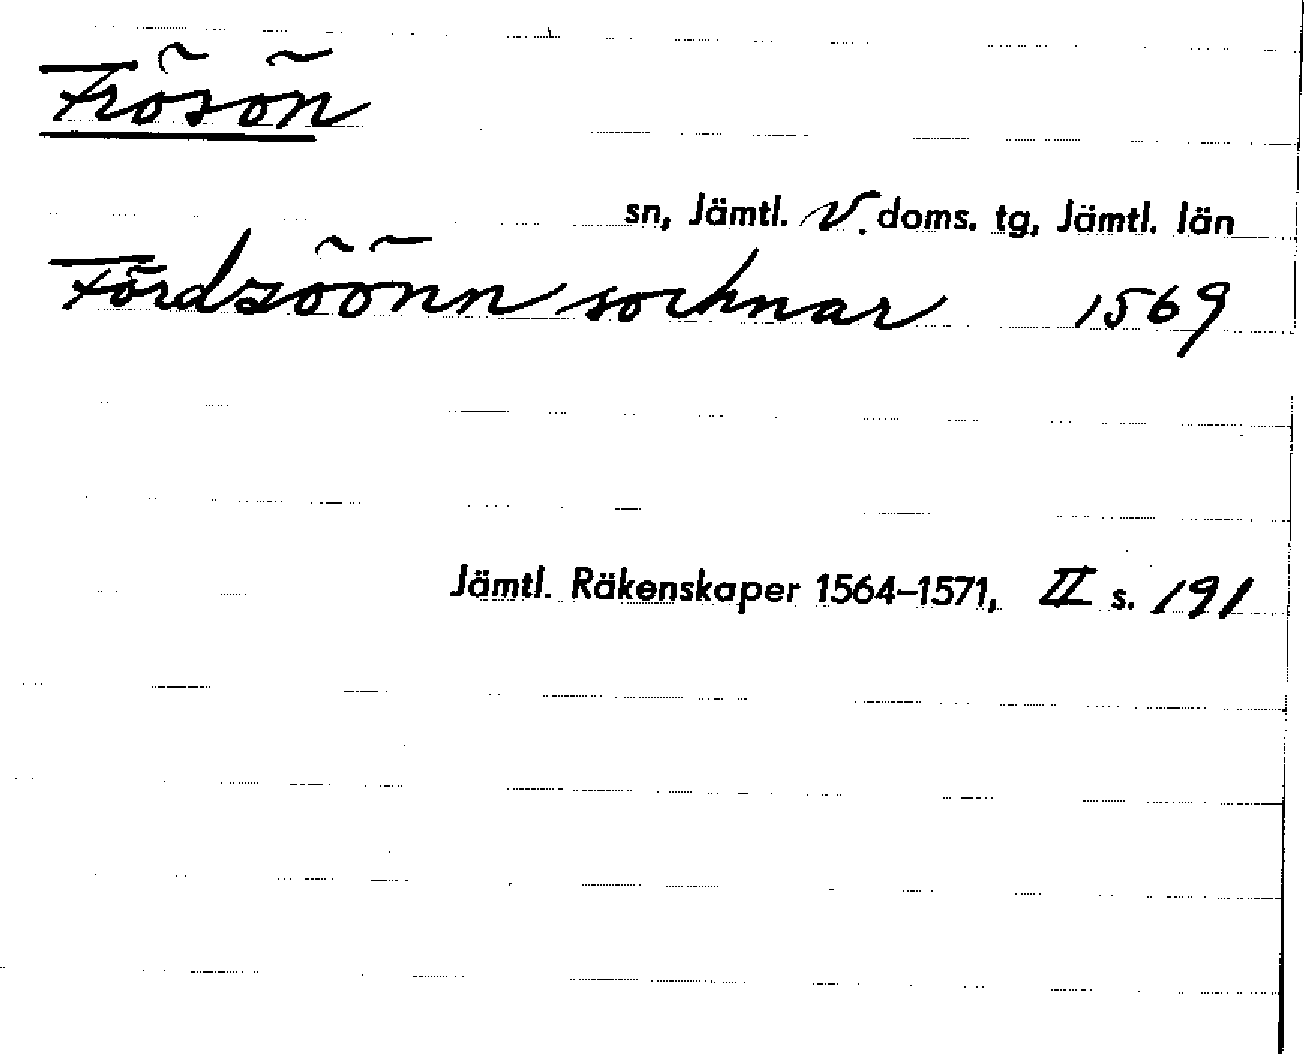 Frösön
sn, Jämtl. V. doms. tg, Jämtl. län
Fördzöönn sochnar 1569
Jämtl. Räkenskaper 1564–1571, II s. 191